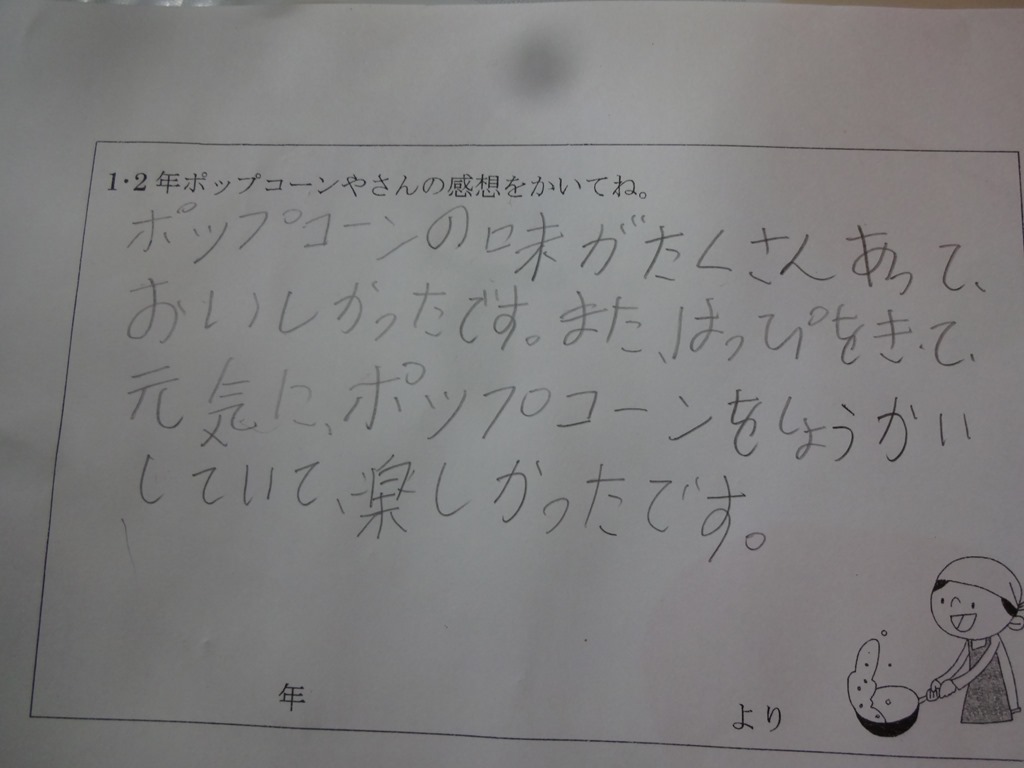 1・2年ポップコーンやさんの感想をかいてね。
ポップコーンの味がたくさんあって、
おいしかったです。また、はっぴをきて、
元気に、ポップコーンをしょうかい
していて、楽しかったです。
年
より